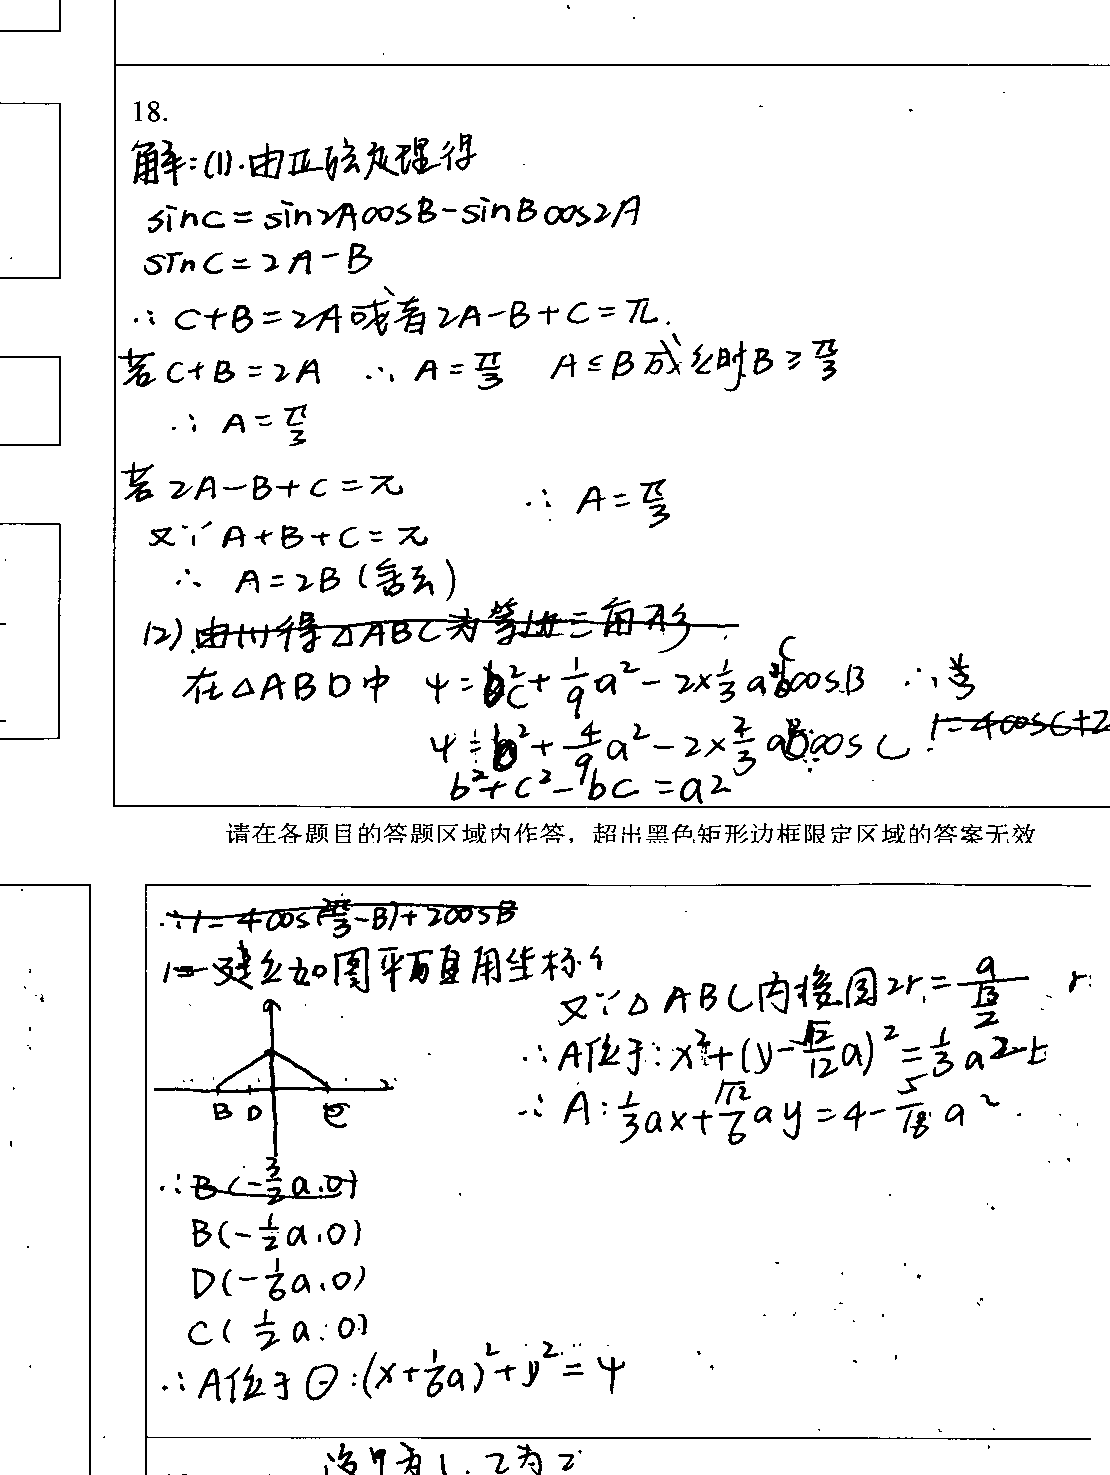 18.
解:(1).由正弦定理得
sinC=sin2AcosB-sinBcos2A
sinC=2A-B
∴C+B=2A或者2A-B+C=π.
若C+B=2A ∴A=π/3 A≤B成立时B≥π/3
∴A=π/3
若2A-B+C=π ∴A=π/3
又∵A+B+C=π
∴A=2B(舍去)
(2)由(1)得△ABC为等边三角形
在△ABD中 4=c²+1/9a²-2×1/3accosB
4=b²+4/9a²-2×2/3abcosC 1=4cosC+2
b²+c²-bc=a2
请在各题目的答题区域内作答，超出黑色矩形边框限定区域的答案无效
∴1=4cos(2π/3-B)+2cosB
建立如图平面直角坐标
又∵△ABC内接圆2r=a/(√3/2)
∴A位于:x²+(y-√12/12a)²=1/3a2
∴A:1/3ax+√12/6ay=4-5/18a².
B D C
∴B(-3/2a.0)
B(-1/2a.0)
D(-1/6a.0)
C(1/2a.0)
∴A位于⊙:(x+1/6a)²+y²=4
1.2为2